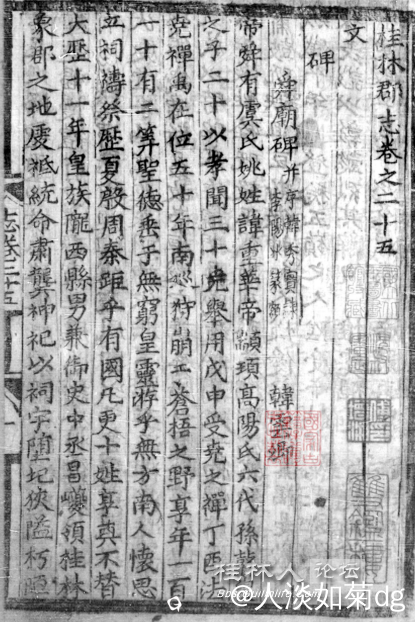 桂林郡志卷之二十五
文
碑
舜廟碑并 韓雲卿
帝舜有虞氏姚姓諱重華帝顓頊高陽氏六代孫瞽
之子二十以孝聞三十堯舉用戊申受堯之禪丁酉
堯禪禹在位五十年南巡狩崩于蒼梧之野享年一百
一十有二筭聖德垂于無窮皇靈游乎無方南人懷思
立祠禱祭歷夏殷周秦距乎有國凡更十姓享奠不替
大歷十一年皇族隴西縣男兼御史中丞昌巙領桂林
象郡之地虔祗統命肅龔神祀以祠宇墮圮狹隘朽
志卷二十五
桂林人论坛
@人淡如菊dg